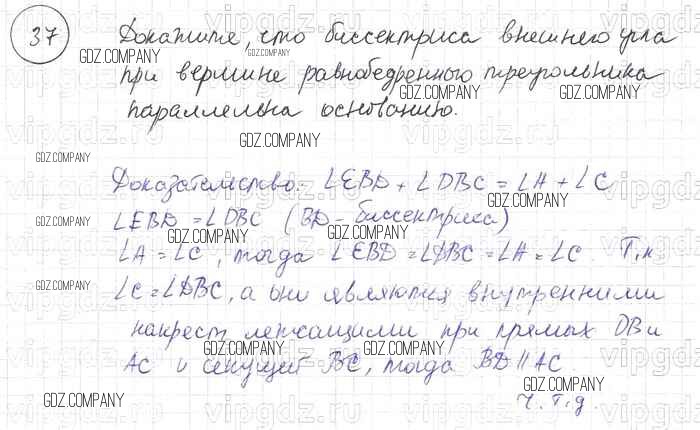 37 Докажите, что биссектриса внешнего угла
при вершине равнобедренного треугольника
параллельна основанию.
Доказательство: ∠EBD + ∠DBC = ∠A + ∠C
∠EBD = ∠DBC (BD - биссектриса)
∠A = ∠C, тогда ∠EBD = ∠DBC = ∠A = ∠C. Т.к
∠C = ∠DBC, а они являются внутренними
накрест лежащими при прямых DB и
AC и секущей BC, тогда BD || AC
ч.т.д.
GDZ.COMPANY
vipgdz.ru